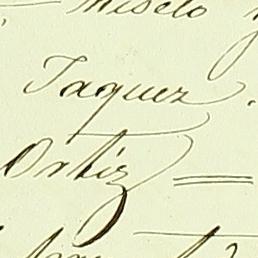 Miselo
Taquez.
Ortiz =